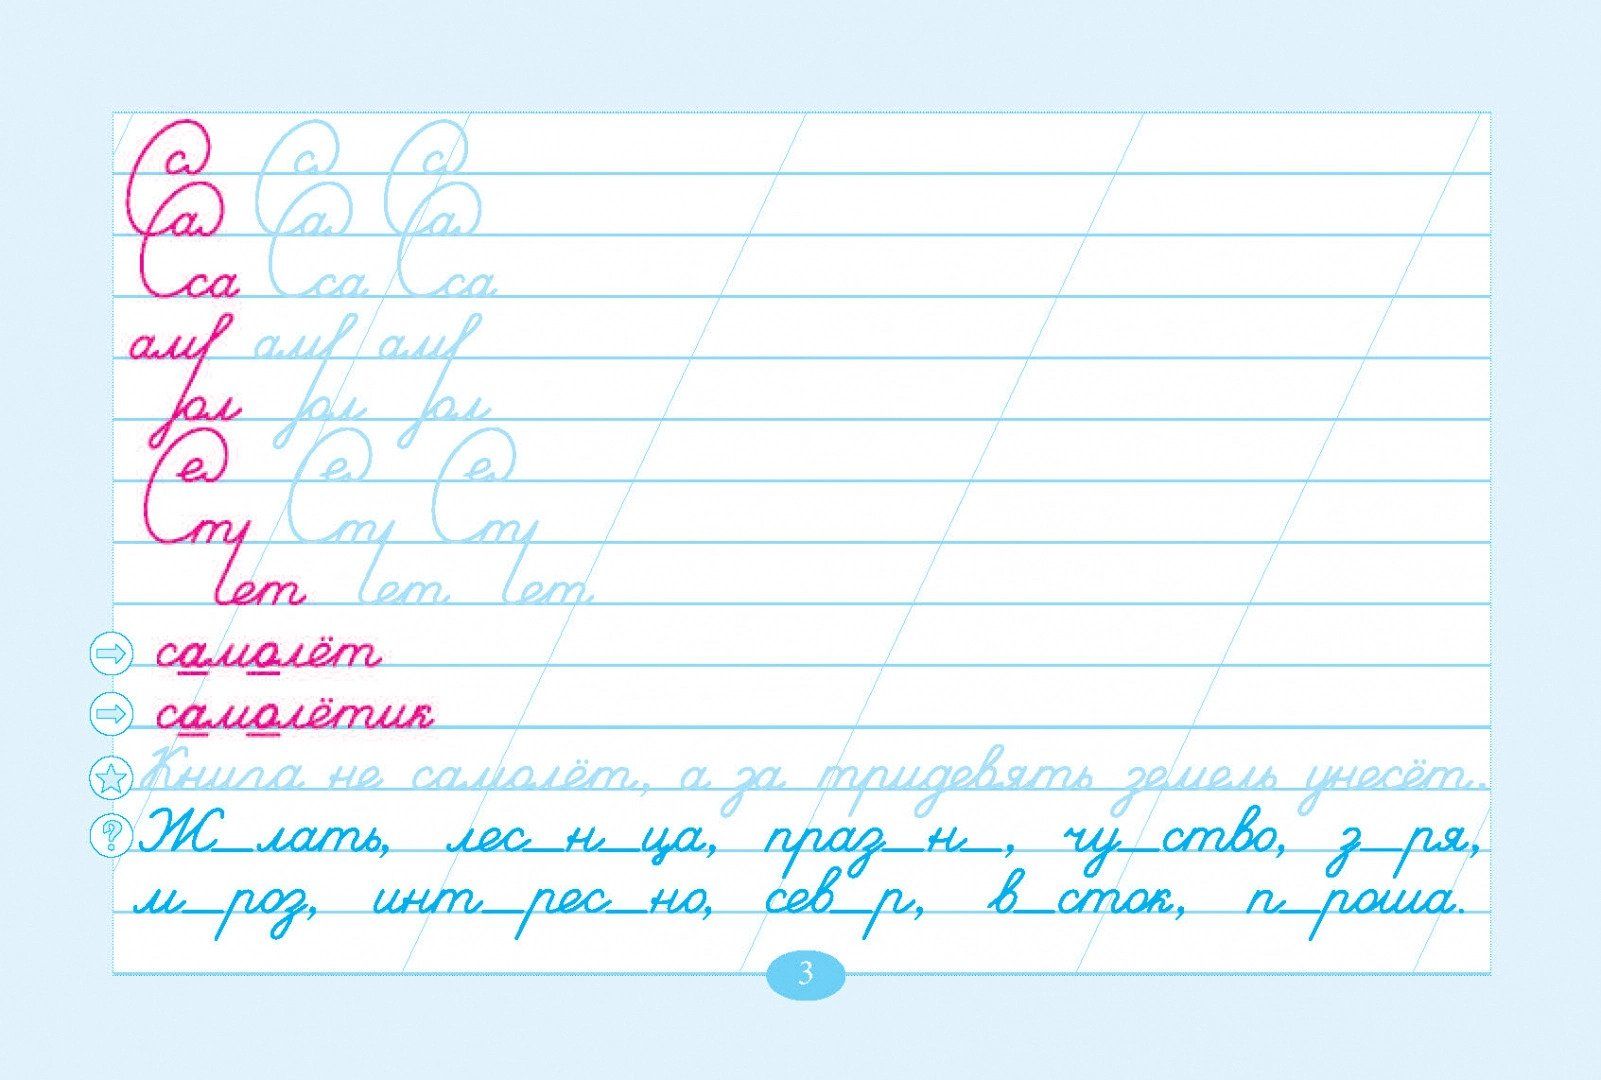 Са Са Са
Са Са Са
са са са
ам ам ам
ол ол ол
Се Се Се
т т т
ет ет ет
самолёт
самолётик
Книга не самолёт, а за тридевять земель унесёт.
Ж_лать, лес_н_ца, праз_н_, чу_ство, з_ря,
м_роз, инт_рес_но, сев_р, в_сток, п_роша.
3